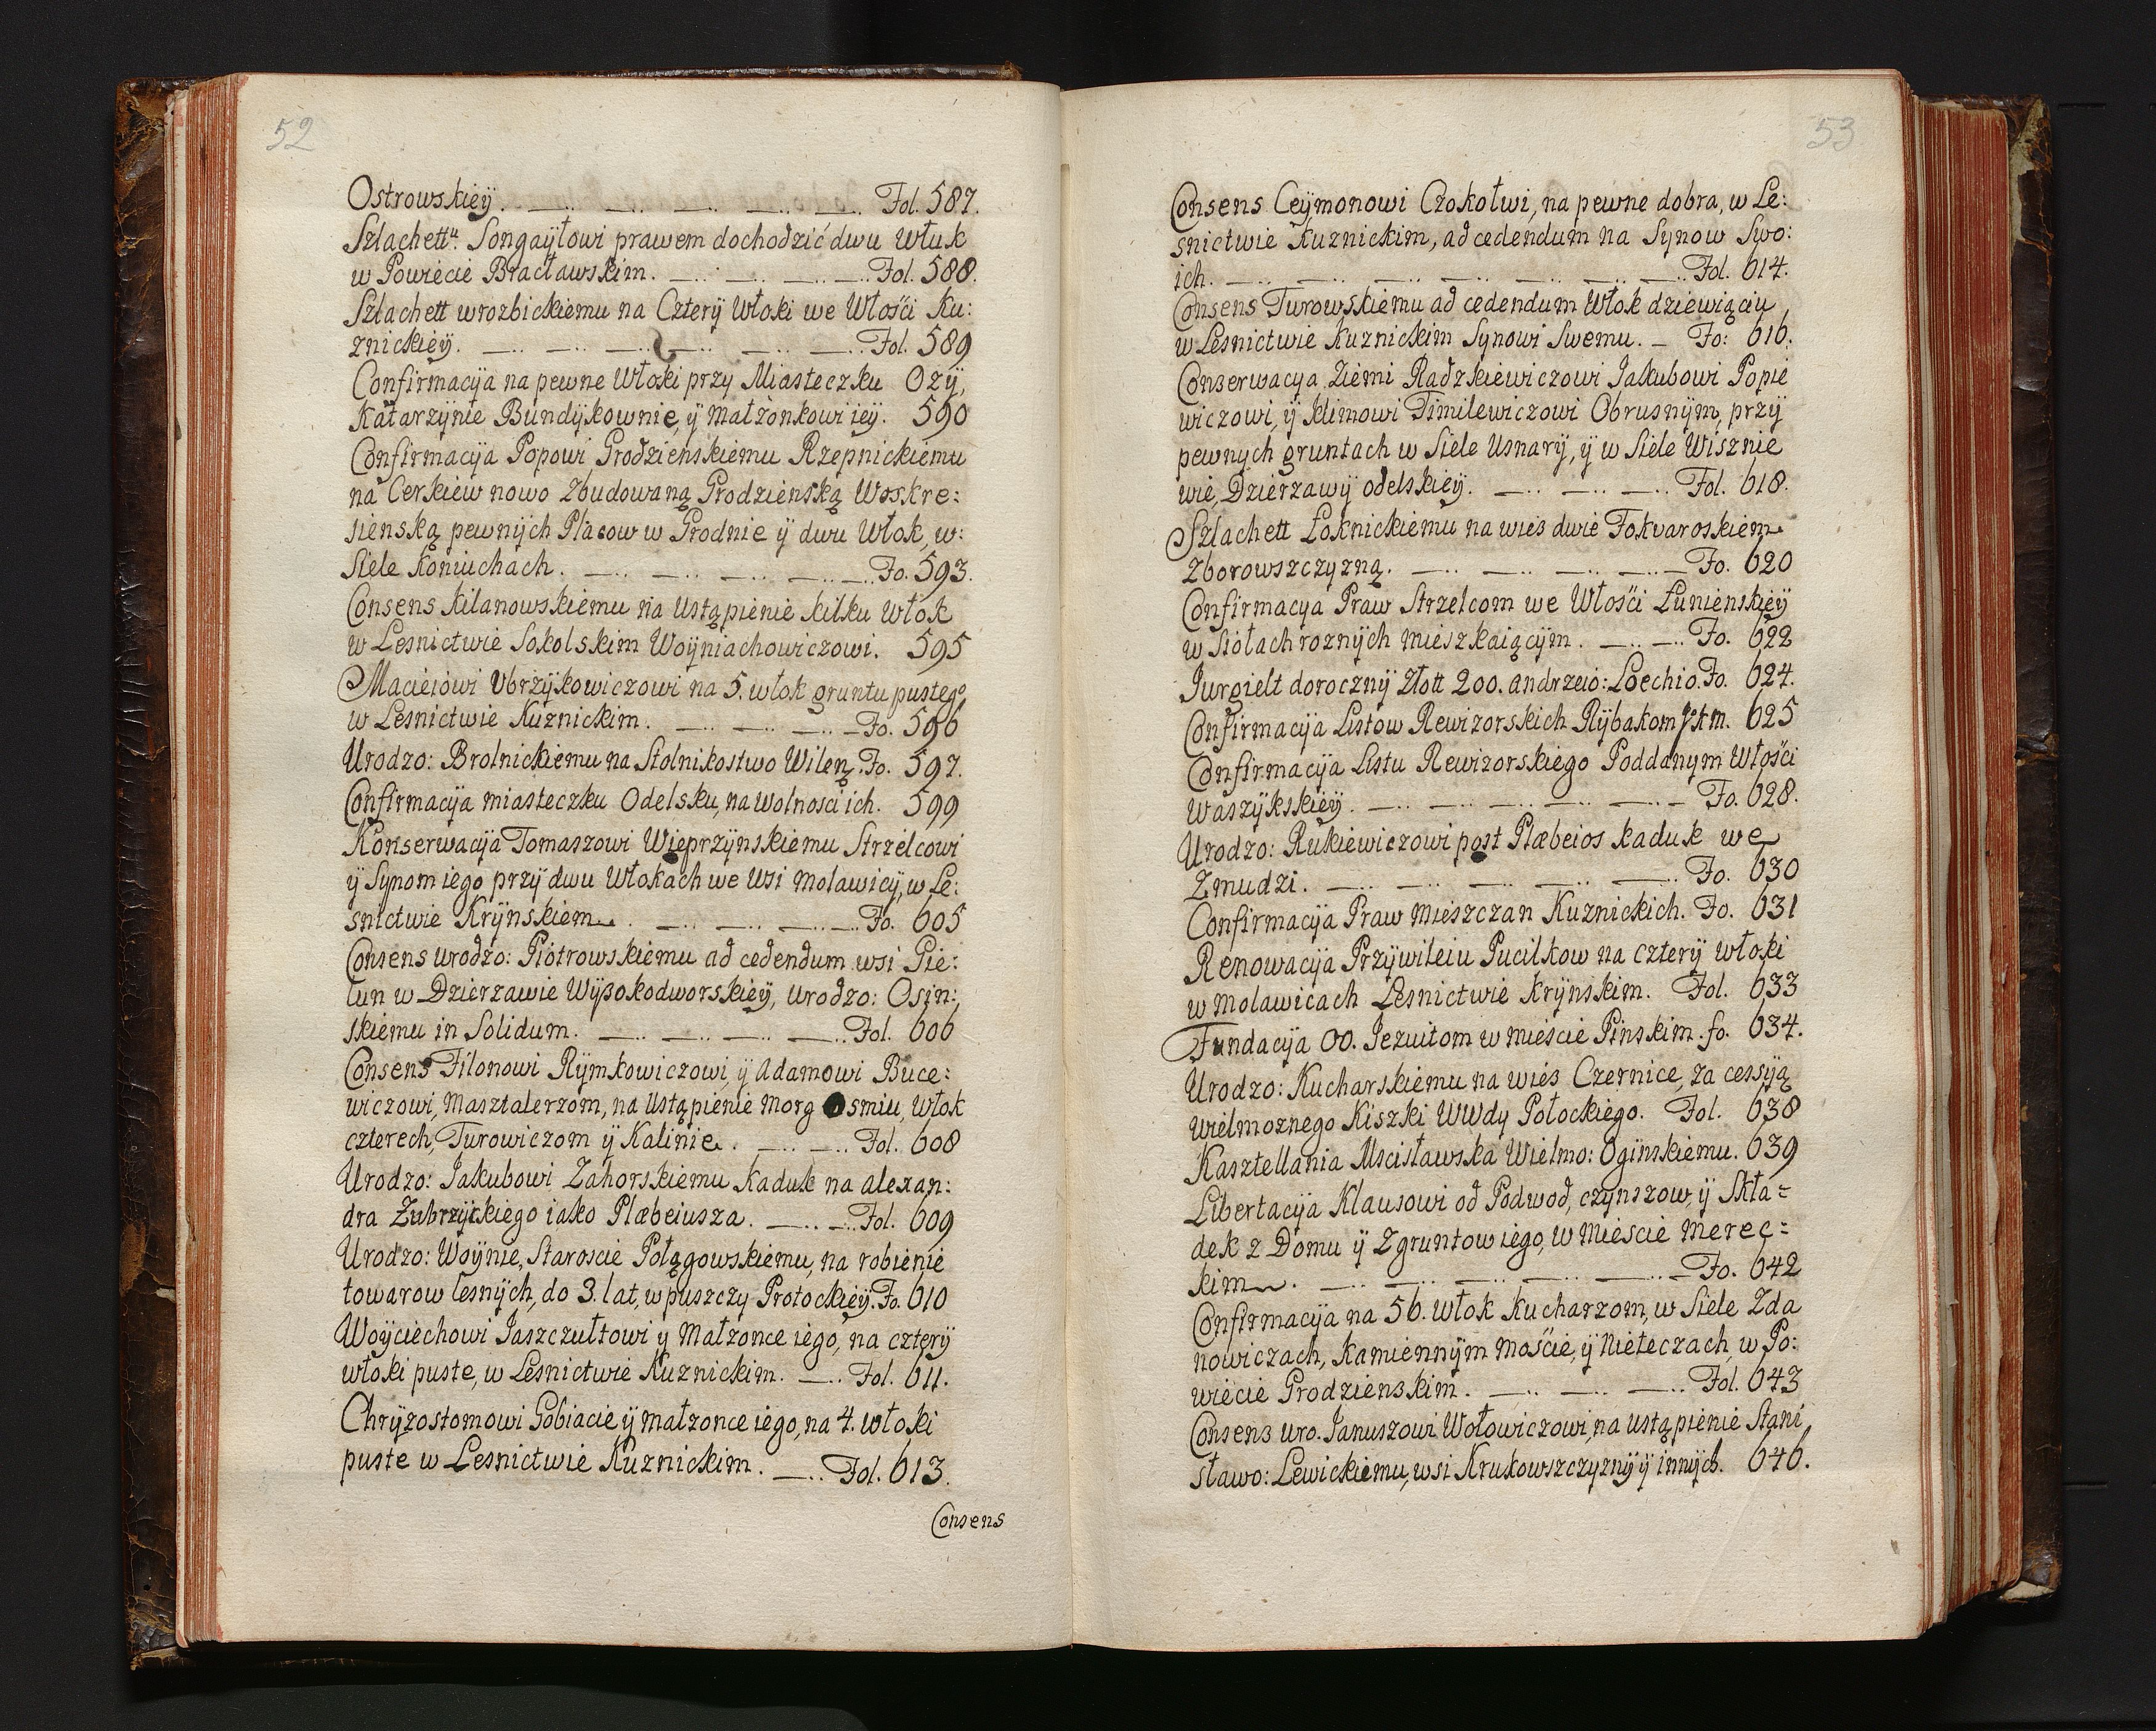 52
Ostrowskiey. Fol. 587.
Szlachett. Songayłowi prawem dochodzić dwu Włuk
w Powiecie Bracławskim. Fol. 588.
Szlachett wrozbickiemu na Cztery Włoki we Włości Ku:
znickiey. Fol. 589
Confirmacÿa na pewne Włoki przy Miasteczku Ozÿ,
Katarzÿnie Bundÿkownie, ÿ małżonkowi ieÿ. 590
Confirmacÿa Popowi Grodzienskiemu Rzepnickiemu
na Cerkiew nowo Zbudowaną Grodzienską Woskre:
sienską pewnÿch Placow w Grodnie ÿ dwu Włok, w:
Siele Koniuchach. Fo. 593.
Consens Kilanowskiemu na Ustąpienie kilku Włok
w Lesnictwie Sokolskim Woÿniachowiczowi. 595
Macieiowi Vbrzÿkowiczowi na 5. włok gruntu pustego
w Lesnictwie Kuznickim. Fo. 596
Urodzo: Brolnickiemu na Stolnikostwo Wilen. Fo. 597.
Confirmacÿa miasteczku Odelsku, na Wolnosci ich. 599
Konserwacÿa Tomaszowi Wieprzÿnskiemu Strzelcowi
ÿ Synom iego przÿ dwu Włokach we Wsi Molawicÿ, w Le:
snictwie Krÿnskiem. Fo. 605
Consens urodzo: Piotrowskiemu ad cedendum wsi Pie:
lun w Dzierzawie Wÿsokodworskieÿ, urodzo: Osin:
skiemu in Solidum. Fol. 606
Consens Filonowi Rÿmkowiczowi, ÿ Adamowi Buce:
wiczowi, Masztalerzom, na Ustąpienie morg Osmiu, Włok
czterech, Turowiczom ÿ Kalinie. Fol. 608
Urodzo: Jakubowi Zahorskiemu Kaduk na alexan:
dra Zubrzÿckiego iako Plæbeiusza. Fol. 609
Urodzo: Woÿnie, Staroscie Połągowskiemu, na robienie
towarow lesnÿch, do 3. lat, w puszczy Protockieÿ. Fo. 610
Woÿciechowi Jaszczułtowi ÿ Małzonce iego, na czterÿ
włoki puste, w Lesnictwie Kuznickim. Fol. 611.
Chrÿzostomowi Gobiacie ÿ małzonce iego, na 4. włoki
puste w Lesnictwie Kuznickim. Fol. 613.
Consens
53
Consens Ceÿmonowi Czokołwi, na pewne dobra, w Le:
snictwie Kuznickim, ad cedendum na Synow Swo:
ich. Fol. 614.
Consens Turowskiemu ad cedendum Włok dziewiąciu
w Lesnictwie Kuznickim Synowi Swemu. Fo: 616.
Conserwacya Ziemi Radzkiewiczowi Jakubowi Popie
wiczowi, ÿ klimowi Timilewiczowi Obrusnÿm, przÿ
pewnych gruntach w Siele Usnarÿ, ÿ w Siele Wisznie
wie, Dzierzawÿ odelskieÿ. Fol. 618.
Szlachett Łoknickiemu na wies dwie Fokvaroskiem
Zborowszczyzną. Fo. 620
Confirmacya Praw Strzelcom we Włości Łunienskieÿ
w Siołach roznÿch mieszkaiącÿm. Fo. 622
Jurgielt dorocznÿ Złott 200. andrzeio: Loechio. Fo. 624.
Confirmacÿa Listow Rewizorskich Rÿbakom JKM. 625
Confirmacÿa Listu Rewizorskiego Poddanÿm Włości
Waszÿkskieÿ. Fo. 628.
Urodzo: Rukiewiczowi post Plæbeios kaduk we
Zmudzi. Fo. 630
Confirmacÿa Praw Mieszczan Kuznickich. Fo. 631
Renowacÿa Przÿwileiu Pucilkow na czterÿ włoki
w Molawicach Lesnictwie Krÿnskim. Fol. 633
Fundacÿa OO. Jezuitom w mieście Pinskim. fo. 634.
Urodzo: Kucharskiemu na wies Czernice, za cessÿą
wielmoznego Kiszki WWdy Połockiego. Fol. 638
Kasztellania Mscisławska Wielmo: Oginskiemu. 639
Libertacÿa Klausowi od Podwod, czÿnszow, ÿ Skła=
dek z Domu ÿ Zgruntow iego, w Mieście merec=
kim. Fo. 642
Confirmacÿa na 56. Włok Kucharzom, w Siele Zda
nowiczach, Kamiennÿm moście, ÿ Nieteczach, w Po:
wiecie Grodzienskim. Fol. 643
Consens uro. Januszowi Wołowiczowi, na ustąpienie Stani,
sławo: Lewickiemu, wsi Krukowszczyznÿ ÿ innÿch. 646.